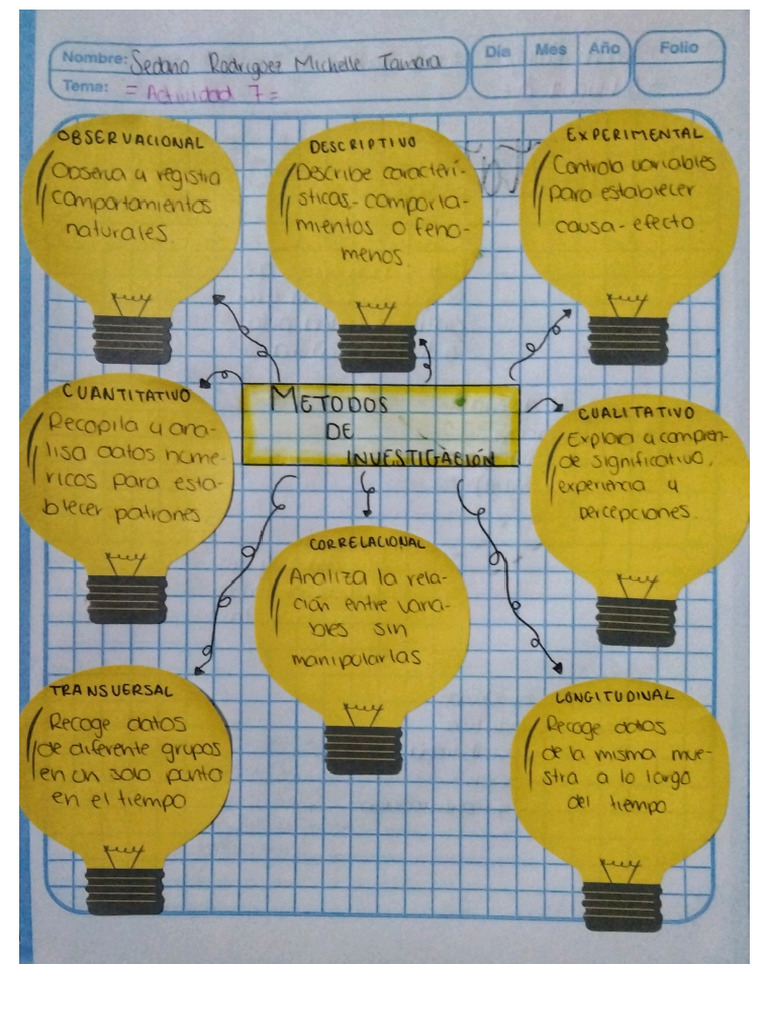 Nombre: Sedano Rodriguez Michelle Tamara
Día Mes Año Folio
Tema: = Actividad 7 =
OBSERVACIONAL
Observa y registra
comportamientos
naturales.
DESCRIPTIVO
Describe caracterí-
sticas, comporta-
mientos o fenó-
menos
EXPERIMENTAL
Controla variables
para establecer
causa-efecto
CUANTITATIVO
Recopila y ana-
lisa datos númé-
ricos para esta-
blecer patrones
METODOS
DE
INVESTIGACIÓN
CUALITATIVO
Explora y compren-
de significativo,
experiencia y
percepciones.
CORRELACIONAL
Analiza la rela-
ción entre varia-
bles sin
manipularlas
TRANSVERSAL
Recoge datos
de diferente grupos
en un solo punto
en el tiempo
LONGITUDINAL
Recoge datos
de la misma mue-
stra a lo largo
del tiempo